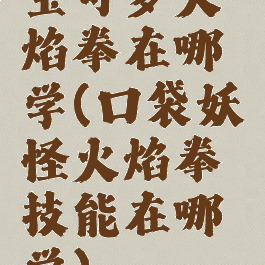 宝可梦火
焰拳在哪
学(口袋妖
怪火焰拳
技能在哪
学)